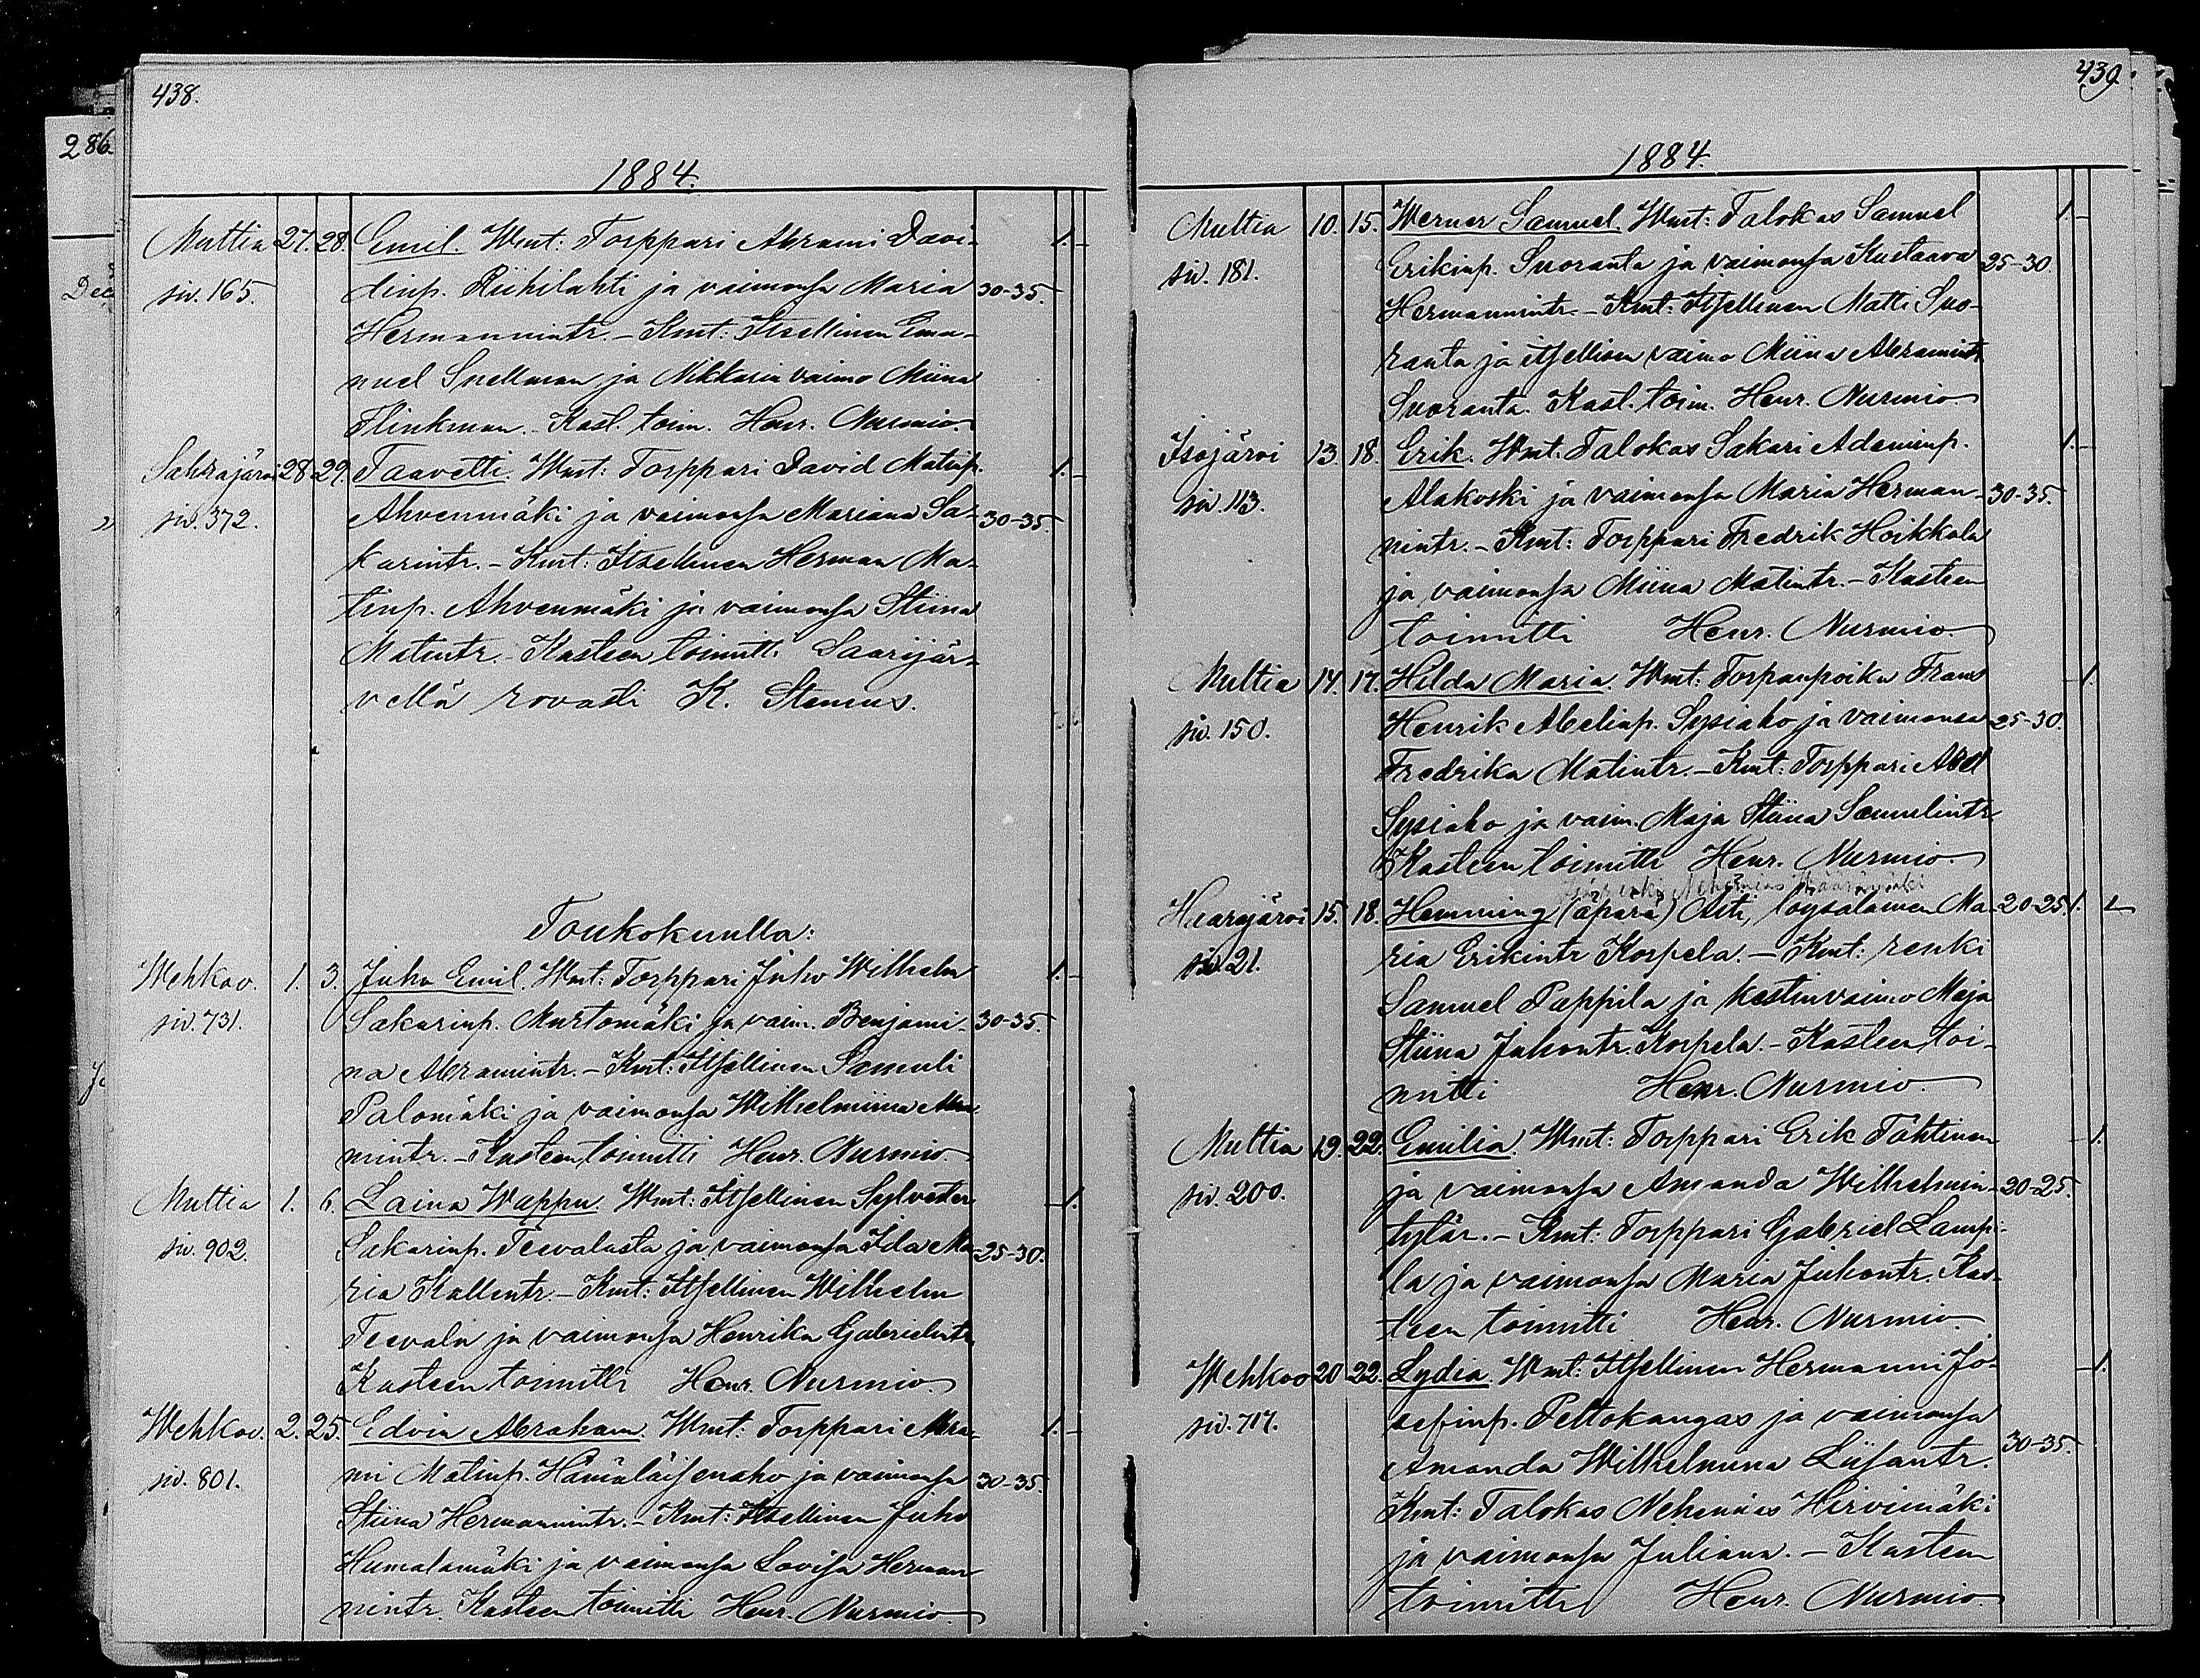 438.
286.
1884.
Multia 27. 28. Emil. Wmt: Torppari Abrami Davi-
siv. 165. dinp. Riihilahti ja vaimonsa Maria 30-35. 1.
Hermannintr. - Kmt: Itsellinen Ema-
nuel Snellman ja Nikkarin vaimo Miina
Flinkman. Kast. toim. Henr. Nurmio.
Sahrajärvi 28 29. Taavetti. Wmt: Torppari David Matinp. 1.
siv. 372. Ahvenmäki ja vaimonsa Mariana Sa- 30-35.
karintr. - Kmt: Itsellinen Herman Ma-
tinp. Ahvenmäki ja vaimonsa Stiina
Matintr. - Kasteen toimitti Saarijär-
vellä rovasti K. Stenius.
Toukokuulla:
Wehkoo. 1. 3. Juho Emil. Wmt: Torppari Juho Wilhelm 1.
siv. 731. Sakarinp. Murtomäki ja vaim. Benjami- 30-35.
na Abramintr. - Kmt: Itsellinen Samuli
Palomäki ja vaimonsa Wilhelmiina Abra-
mintr. - Kasteen toimitti Henr. Nurmio.
Multia 1. 6. Laina Wappu. Wmt: Itsellinen Sylvester 1.
siv. 902. Sakarinp. Teevalasta ja vaimonsa Ida Ma- 25-30.
ria Kallentr. - Kmt: Itsellinen Wilhelm
Teevala ja vaimonsa Henrika Gabrielintr.
Kasteen toimitti Henr. Nurmio.
Wehkoo. 2. 25. Edvin Abraham. Wmt: Torppari Abra- 1.
siv. 801. mi Matinp. Hämäläisenaho ja vaimonsa 30-35.
Stiina Hermannintr. - Kmt: Itsellinen Juho
Humalamäki ja vaimonsa Lovisa Herman-
nintr. Kasteen toimitti Henr. Nurmio.
439.
1884.
Multia 10. 15. Werner Samuel. Wmt: Talokas Samuel 1.
siv. 181. Erikinp. Suoranta ja vaimonsa Kustaava 25-30.
Hermannintr. - Kmt: Itsellinen Matti Suo-
ranta ja itsellisen vaimo Miina Abramintr.
Suoranta. Kast. toim. Henr. Nurmio
Isojärvi 13. 18. Erik. Wmt. Talokas Sakari Adaminp. 1.
siv. 113. Alakoski ja vaimonsa Maria Herman- 30-35.
nintr. - Kmt: Torppari Fredrik Hoikkala
ja vaimonsa Miina Matintr. - Kasteen
toimitti Henr. Nurmio.
Multia 14. 17. Hilda Maria. Wmt: Torpanpoika Frans 1.
siv. 150. Henrik Abelinp. Sysiaho ja vaimonsa 25-30.
Fredrika Matintr. - Kmt: Torppari Abel
Sysiaho ja vaim. Maja Stiina Samulintr.
Kasteen toimitti Henr. Nurmio.
Huarejärvi 15. 18. Hemming (äpärä) Äiti, loysaläinen Ma- 20-25 1. 1
siv. 21. ria Erikintr Korpela. - Kmt: renki
Samuel Pappila ja kestinvaimo Maja
Stiina Juhontr. Korpela. - Kasteen toi-
mitti Henr. Nurmio.
Multia 19. 22. Emilia. Wmt: Torppari Erik Tähtinen 1.
siv. 200. ja vaimonsa Amanda Wilhelmin- 20-25.
tytär. - Kmt: Torppari Gabriel Lampi-
la ja vaimonsa Maria Juhontr. Kas-
teen toimitti Henr. Nurmio.
Wehkoo 20 22. Lydia. Wmt: Itsellinen Hermanni Jo- 1.
siv. 717. sefinp. Peltokangas ja vaimonsa
Amanda Wilhelmina Liisantr. 30-35.
Kmt: Talokas Nehemias Hirvimäki
ja vaimonsa Juliana. - Kasteen
toimitti Henr. Nurmio